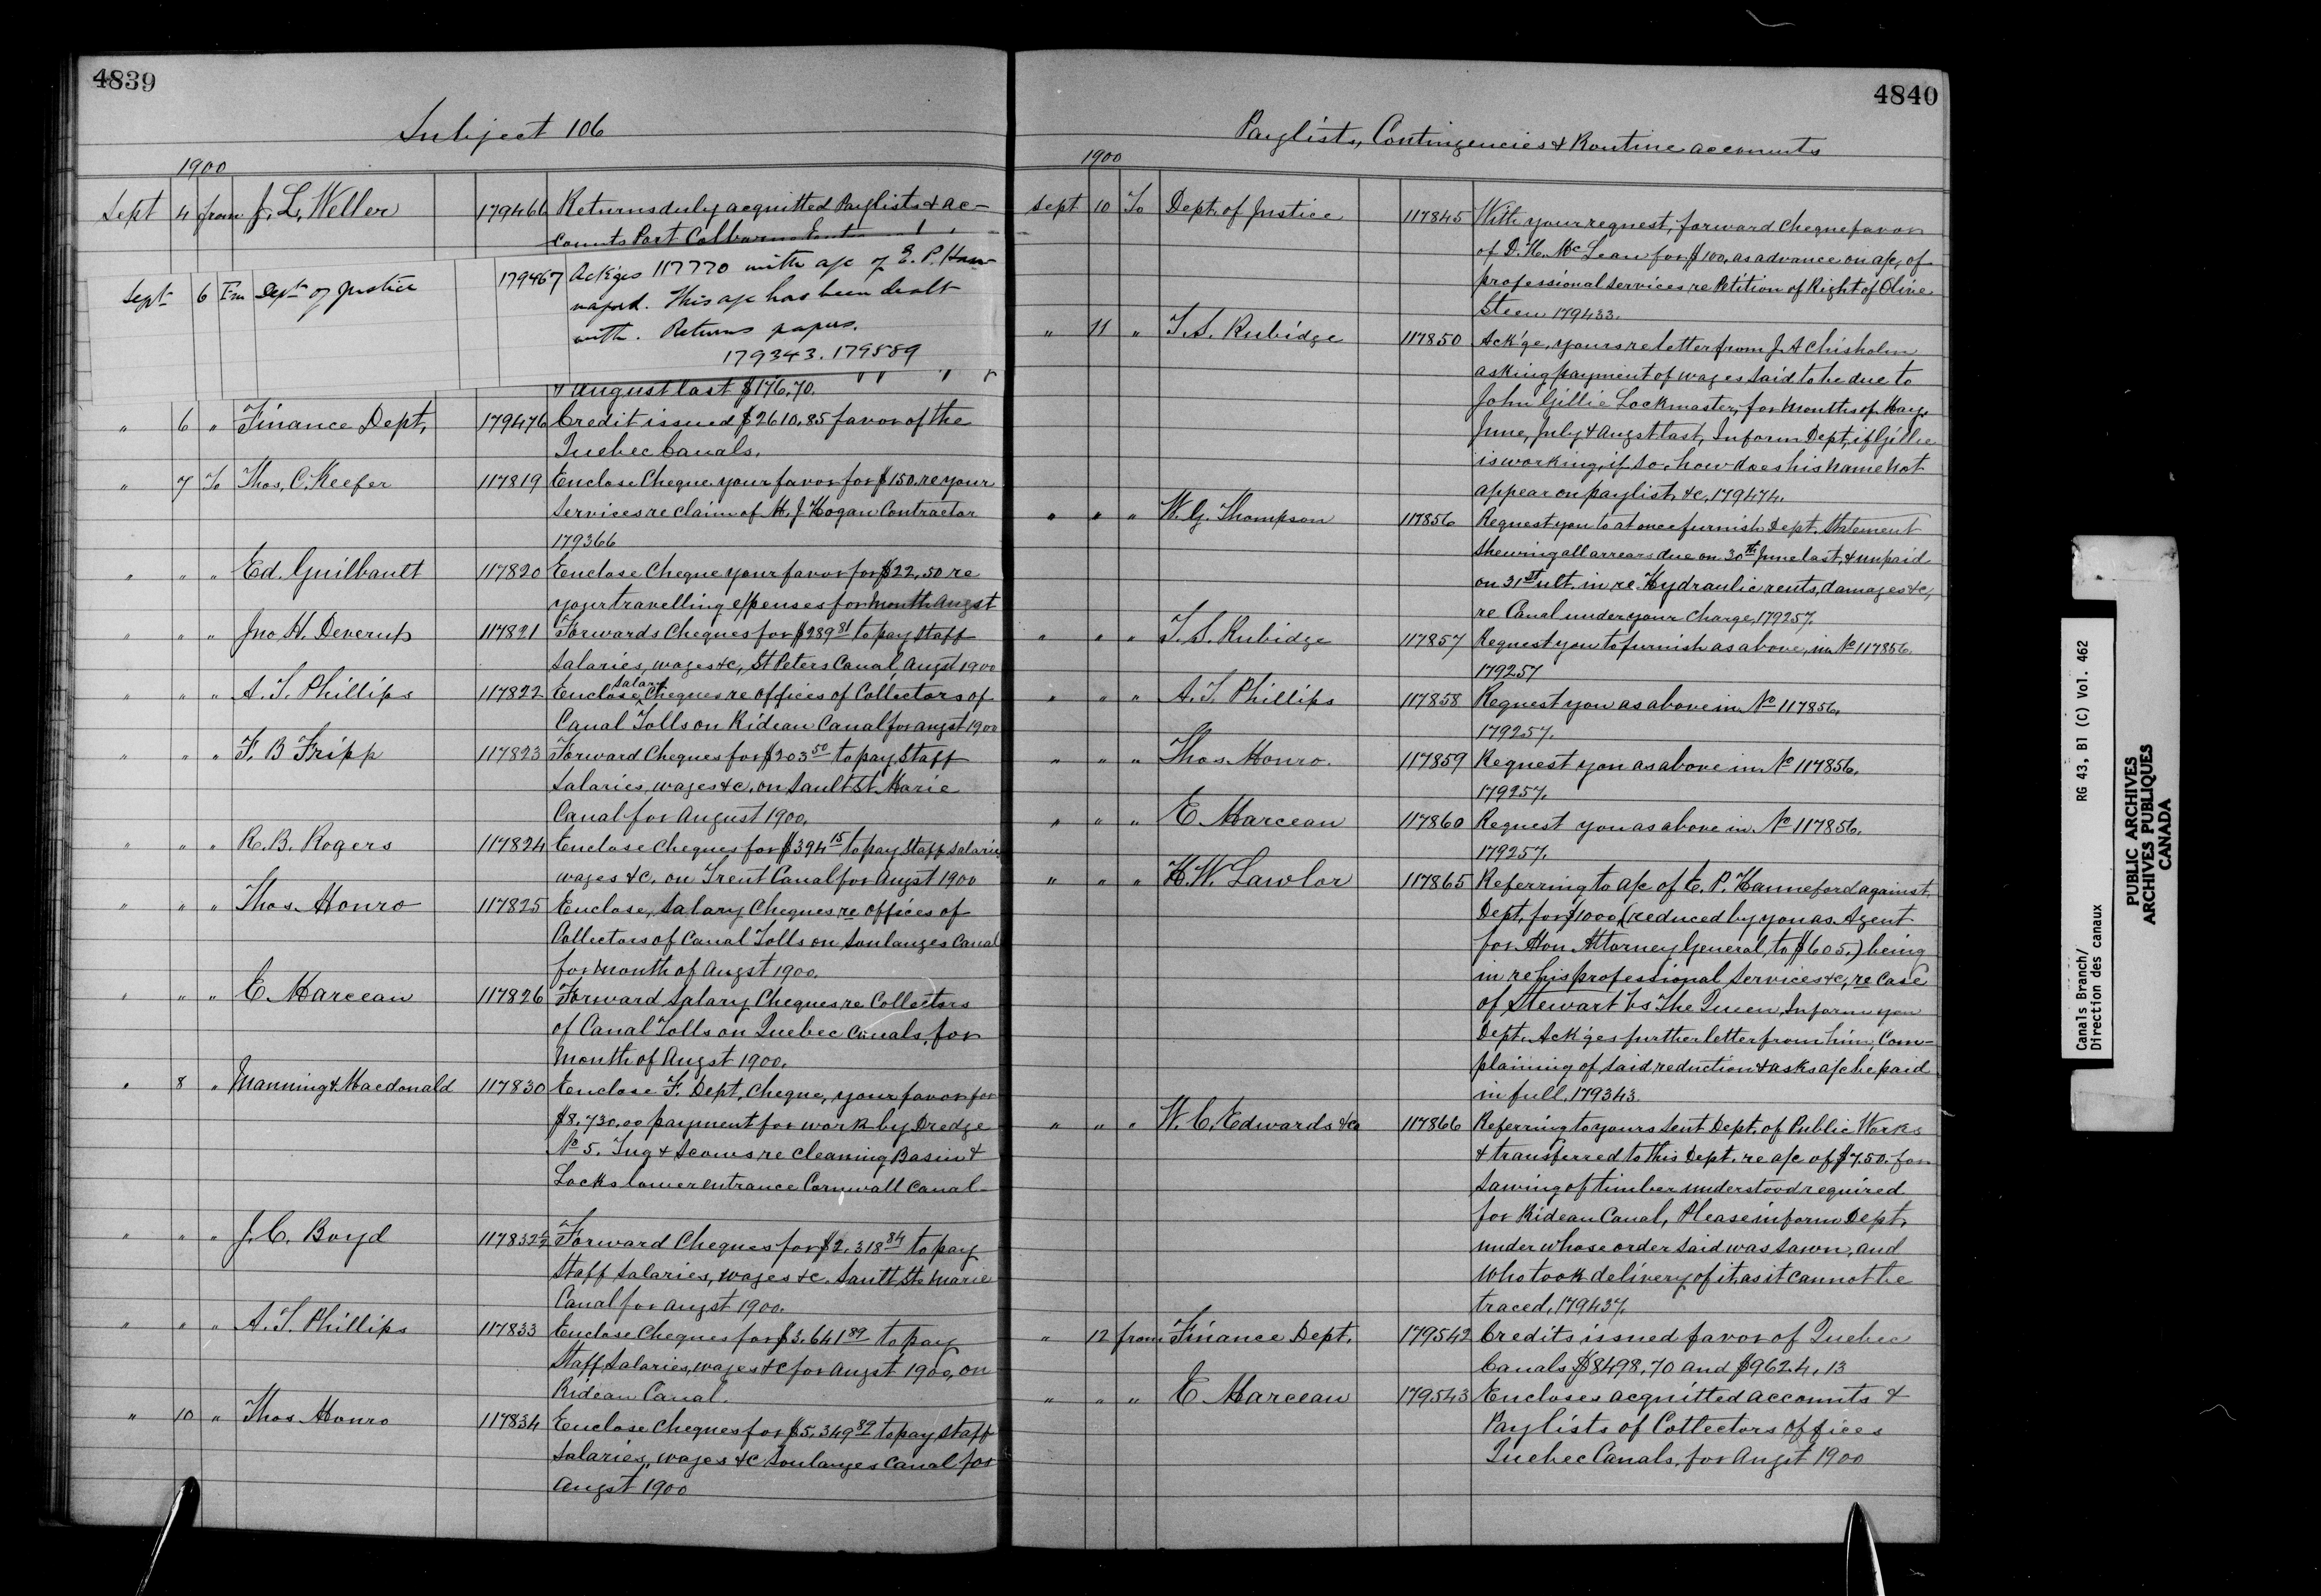 4839
Subject 106
1900
Sept 4 from J. L. Weller 179466 Returns duly acquitted Paylists & ac-
counts Port Colborne
Sept 6 Fm Dept of Justice 179467 Ack'ges 117770 with a/c of E. P. Han-
naford. This a/c has been dealt
with. Returns papers.
179343. 179589
& August last $176.70. " " " "
" 6 " Finance Dept. 179476 Credit issued $2610.85 favor of the
Quebec Canals.
" 7 To Thos. C. Keefer 117819 Enclose Cheque your favor for $150. re your
services re claim of M. J. Hogan Contractor
179366
" " " Ed. Guilbault 117820 Enclose Cheque your favor for $22.50 re
your travelling expenses for month Augst
" " " Jno. H. Deverup 117821 Forwards Cheques for $289 81 to pay staff
salaries, wages &c, St Peters Canal, Augst 1900
" " " A. T. Phillips 117822 Enclose salary Cheques re offices of Collectors of
Canal Tolls on Rideau Canal for Augst 1900
" " " F. B Fripp 117823 Forward Cheques for $203 50 to pay Staff
salaries, wages &c. on Sault St. Marie
Canal for August 1900.
" " " R. B. Rogers 117824 Enclose Cheques for $394 15 to pay Staff salaries
wages &c. on Trent Canal for Augst 1900
" " " Thos. Monro 117825 Enclose, salary Cheques re offices of
Collectors of Canal Tolls on Soulanges Canal
for month of Augst 1900.
" " " E. Marceau 117826 Forward, salary Cheques re Collectors
of Canal Tolls on Quebec Canals, for
month of Augst 1900.
" 8 " Manning & Macdonald 117830 Enclose F. Dept, Cheque, your favor for
$8,730.00 payment for work by Dredge
No 5. Tug & Scows re cleaning Basin &
Locks lower entrance Cornwall Canal
" " " J. C. Boyd 117832½ Forward Cheques for $2,318 84 to pay
Staff Salaries, wages &c. Sault Ste Marie
Canal for Augst 1900.
" " " A. T. Phillips 117833 Enclose Cheques for $3,641 89 to pay
Staff Salaries, wages &c for Augst 1900, on
Rideau Canal.
" 10 " Thos Monro 117834 Enclose Cheques for $5,349 89 to pay staff
Salaries, wages &c Soulanges Canal for
Augst 1900
4840
Paylists, Contingencies & Routine accounts
1900
Sept 10 To Dept. of Justice 117845 With your request, forward Cheque favor
of D. H. McLean for $100. as advance on a/c, of
professional services, re Petition of Right of Olive
Steen 179433.
" 11 " T. S. Rubidge 117850 Ack'ge, yours re letter from J. A Chisholm
asking payment of wages said to be due to
John Gillie Lockmaster, for months of May,
June, July & Augst last, Inform Dept, if Gillie
is working, if so, how does his name not
appear on paylist, &c, 179474.
" " " W. G. Thompson 117856 Request you to at once furnish Dept. Statement
shewing all arrears due on 30th June last, & unpaid
on 31st ult. in re Hydraulic rents, damages &c,
re Canal under your charge, 179257.
" " " T. S. Rubidge 117857 Request you to furnish as above, in No 117856.
179257
" " " A. T. Phillips 117858 Request you as above in No 117856.
179257.
" " " Thos. Monro. 117859 Request you as above in No 117856.
179257.
" " " E. Marceau 117860 Request you as above in No 117856.
179257.
" " " H. W. Lawlor 117865 Referring to a/c of E. P. Hanneford against
Dept. for $1000 (reduced by you as Agent
for Hon Attorney General, to $605.) being
in re his professional services &c, re Case
of Stewart Vs The Queen, Inform you
Dept. Ack'ges further letter from him, Com-
plaining of said reduction & asks a/c be paid
in full, 179343.
" " " W. C. Edwards &Co 117866 Referring to yours sent Dept. of Public Works
& transferred to this Dept. re a/c of $7.50. for
sawing of timber understood required
for Rideau Canal, Please inform Dept,
under whose order said was sawn, and
who took delivery of it, as it cannot be
traced, 179437.
" 12 from Finance Dept. 179542 Credits issued favor of Quebec
Canals $8498.70 and $9624.13
" " " E Marceau 179543 Encloses acquitted accounts &
Paylists of Collectors offices
Quebec Canals, for Augst 1900
Canals Branch/ RG 43, B1 (C) Vol. 462
Direction des canaux
PUBLIC ARCHIVES
ARCHIVES PUBLIQUES
CANADA